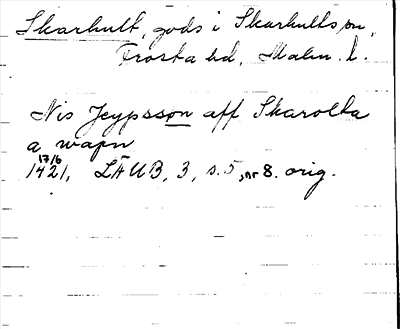 Skarhult, gods i Skarhults sn,
Frosta hd, Malm. l.
Nis Jeypsson aff Skarolta
a wapn
17/6
1421, LÄUB, 3, s. 5, nr 8. orig.